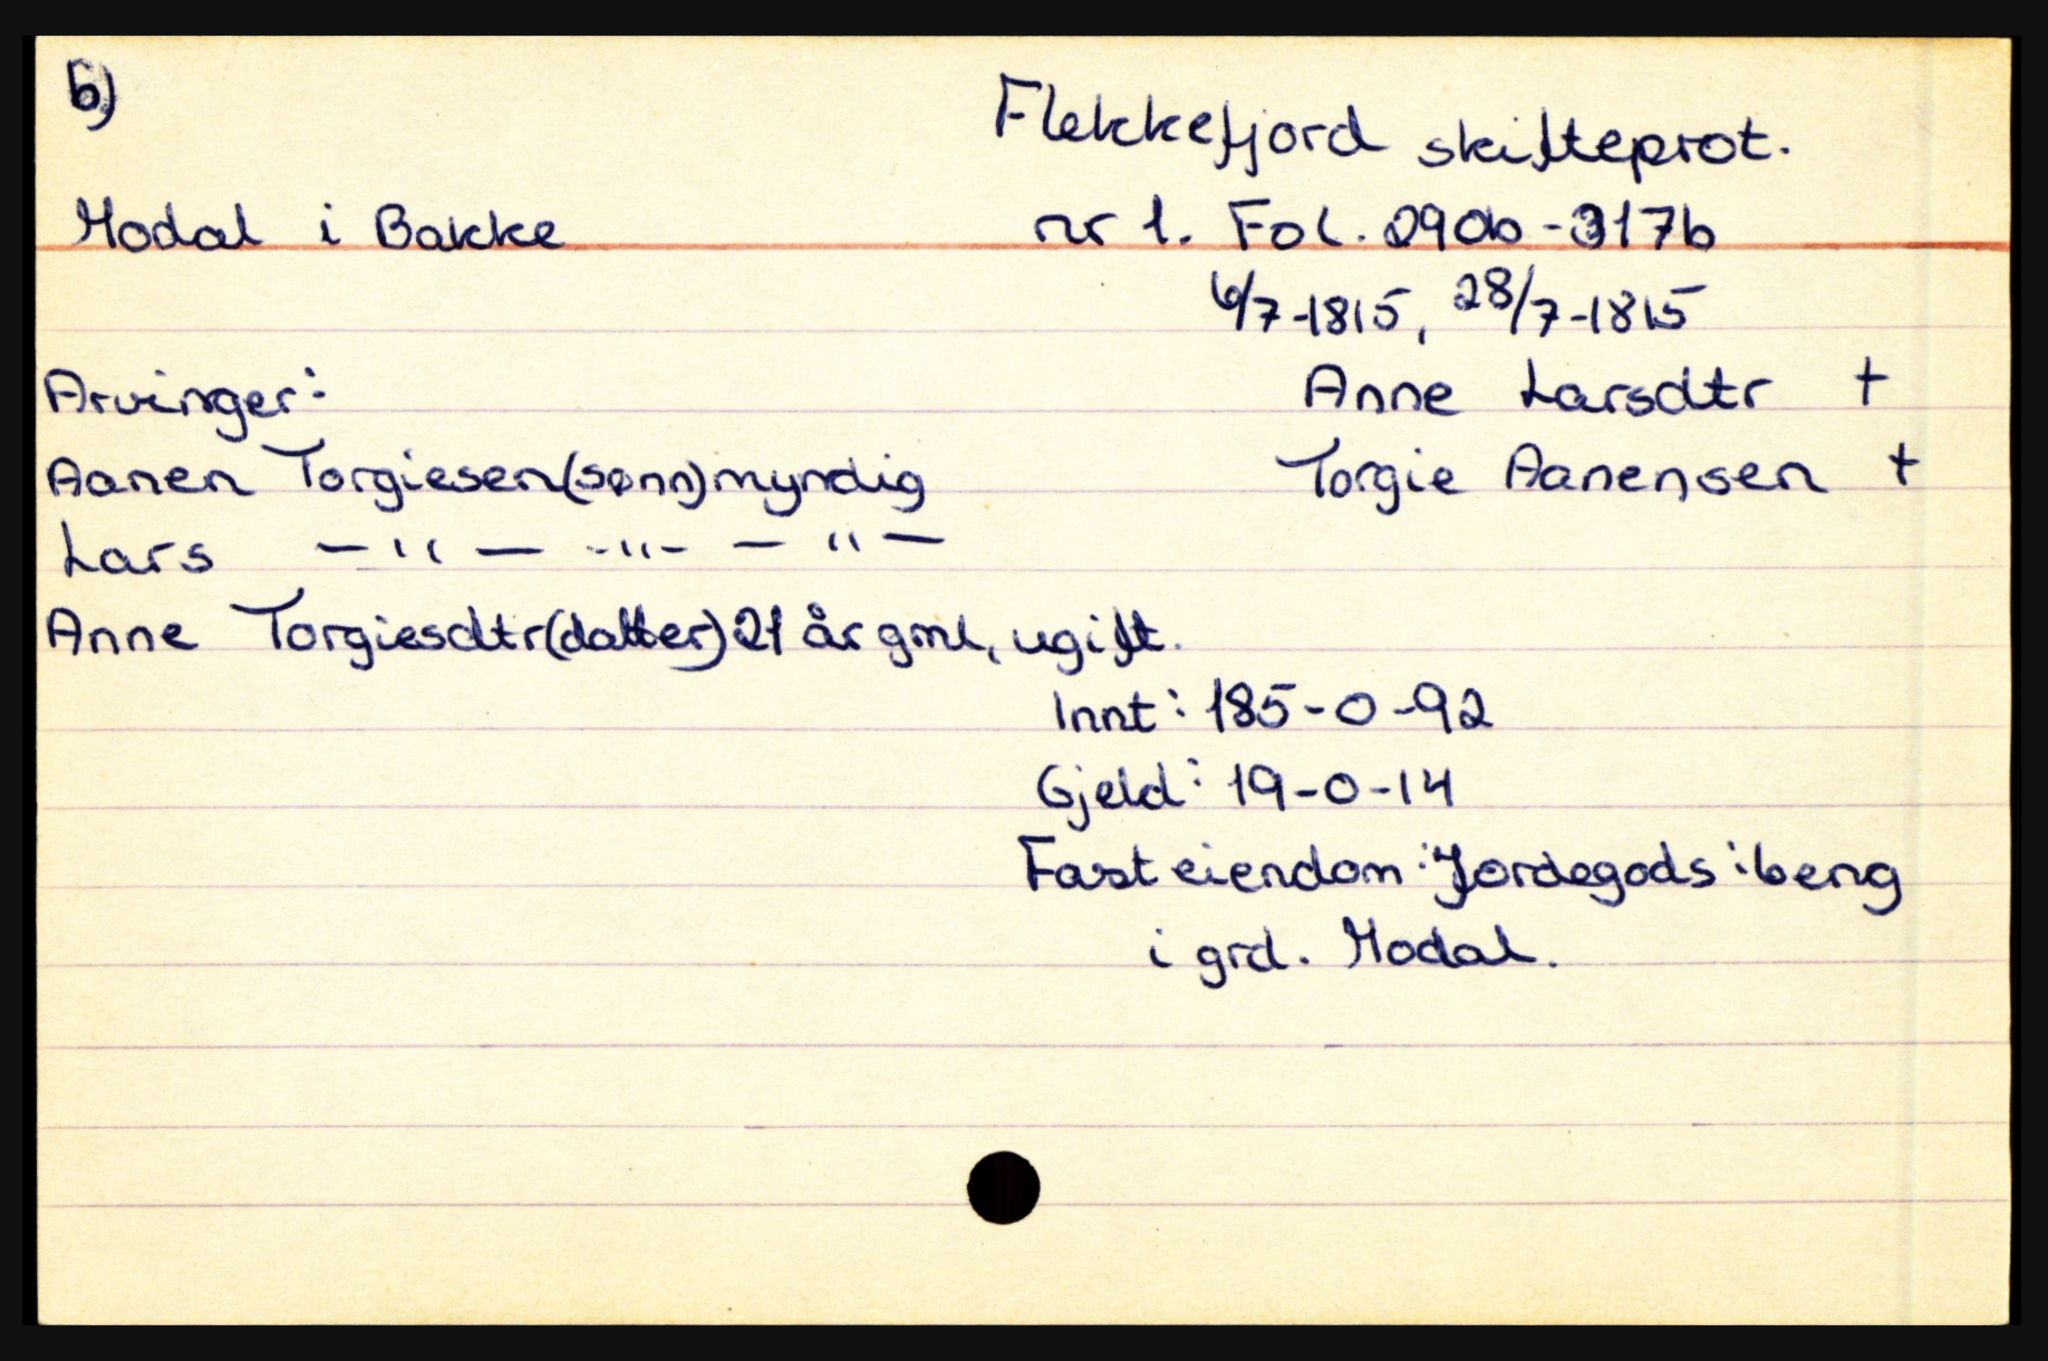 b)
Flekkefjord skifteprot.
Modal i Bakke
nr 1. Fol. 290b-317b
6/7-1815, 28/7-1815
Arvinger:
Anne Larsdtr †
Aanen Torgiesen(sønn)myndig
Torgie Aanensen †
Lars —"— -"- —"—
Anne Torgiesdtr(datter)21 år gml, ugift.
Innt: 185-0-92
Gjeld: 19-0-14
Fast eiendom: Jordegods: beng
i grd. Modal.